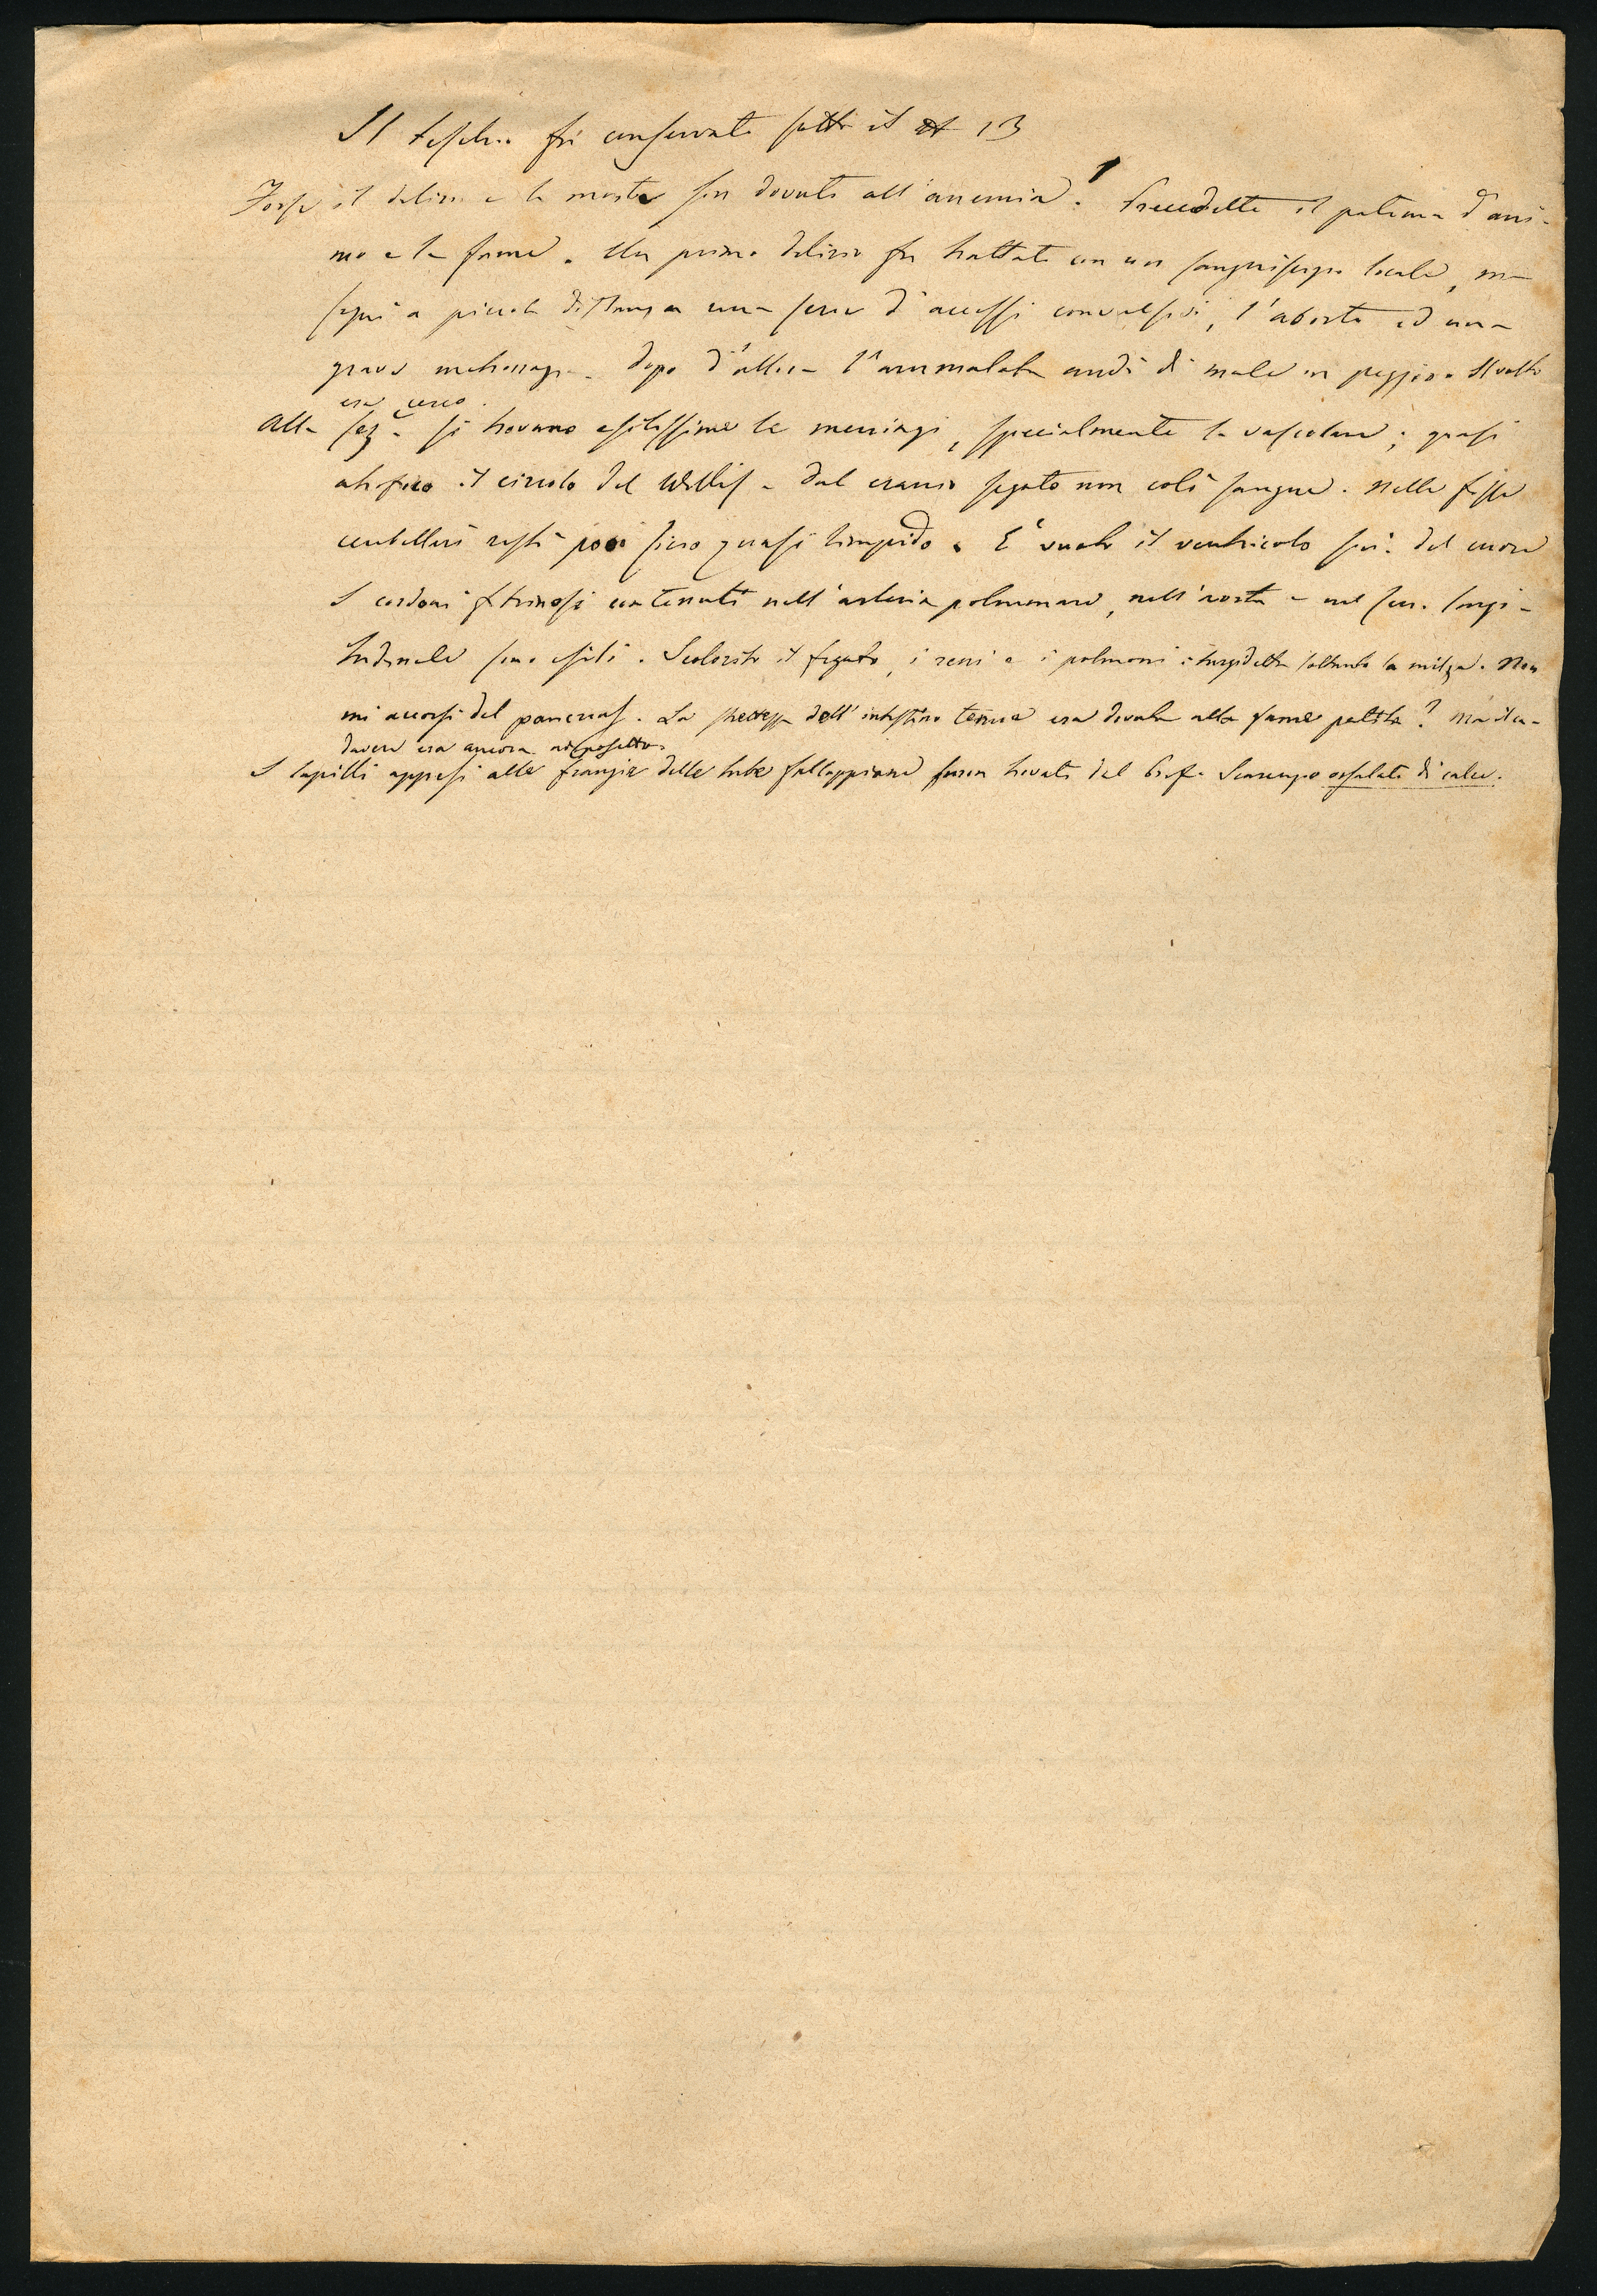 Il teschio fu conservato sotto il 13
Forse il delirio e la morte fur dovuti all'anemia? Precedette il patema d'ani-
mo e la fame. Un primo delirio fu trattato con un sanguisugio locale, ma
seguì a piccola distanza una serie d'accessi convulsivi, l'aborto ed una
grave metrorragia. Dopo d'allora l'ammalata andò di male in peggio. Il volto
era cereo.
Alla sez.e si trovano esilissime le meningi, specialmente la vascolare; quasi
atrofico il circolo del Willis. Dal cranio segato non colò sangue. Nelle fosse
cerebellari restò poco siero quasi limpido. È vuoto il ventricolo sin. del cuore
I cordoni fibrinosi contenuti nell'arteria polmonare, nell'aorta e nel sen. longi-
tudinale sono esili. Scolorito il fegato, i reni e i polmoni: turgidetta soltanto la milza. Non
mi accorsi del pancreas. La strettezza dell'intestino tenue era dovuta alla fame patita? Ma il ca-
davere era ancora adiposetto.
I lapilli appesi alle frangie delle tube falloppiane furon trovati dal Prof. ossalato di calce.